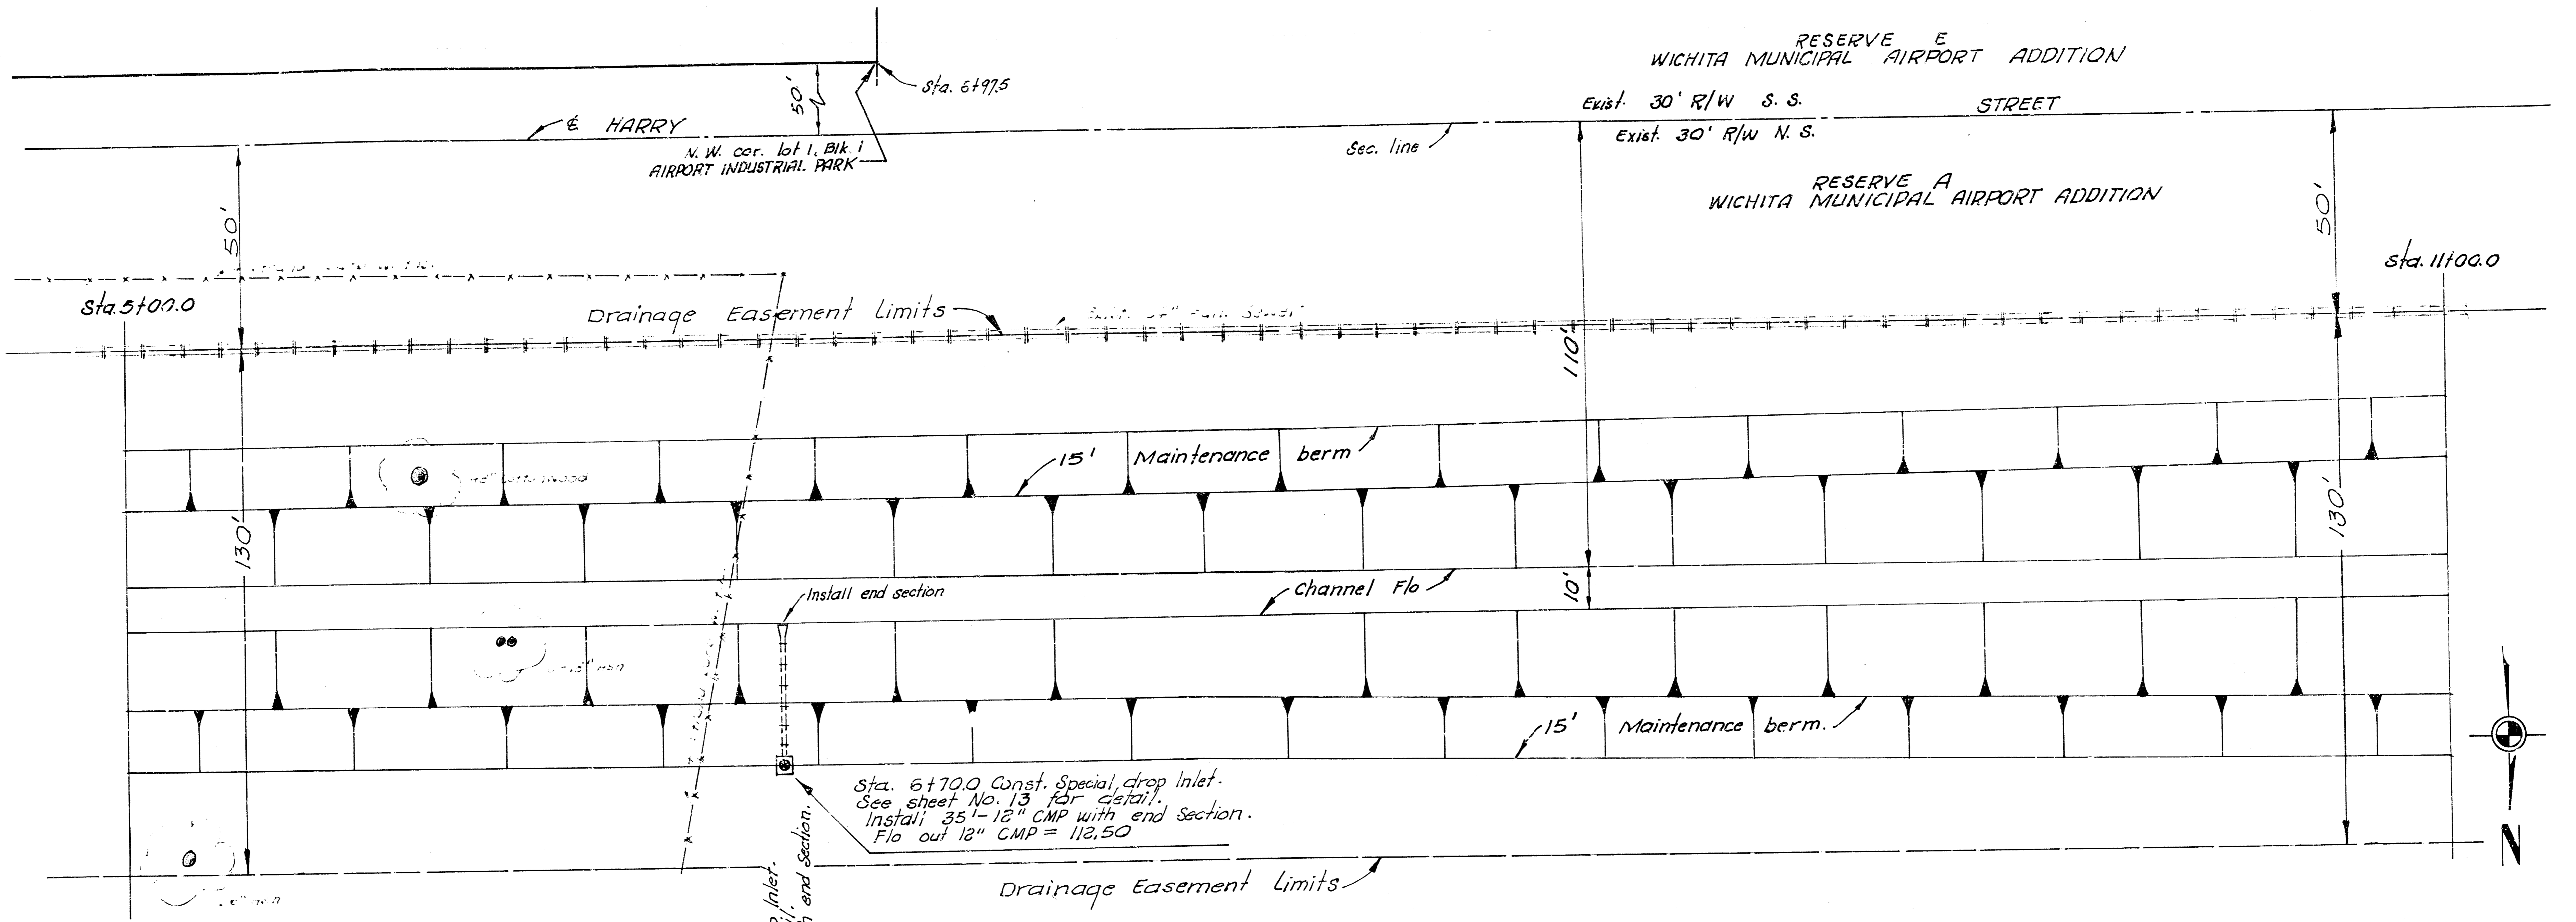 RESERVE E
WICHITA MUNICIPAL AIRPORT ADDITION
Sta. 6+97.5
50'
Exist. 30' R/W S. S.
STREET
℄ HARRY
Exist. 30' R/W N. S.
N. W. cor. lot 1, Blk. 1
AIRPORT INDUSTRIAL PARK
Sec. line
RESERVE A
WICHITA MUNICIPAL AIRPORT ADDITION
50'
50'
Sta. 5+00.0
Sta. 11+00.0
Drainage Easement Limits
110'
15' Maintenance berm
130'
130'
Install end section
Channel Flo
10'
15' Maintenance berm.
Sta. 6+70.0 Const. Special drop Inlet.
See sheet No. 13 for detail.
Install 35'-12" CMP with end Section.
Flo out 12" CMP = 112.50
Inlet.
end Section.
Drainage Easement Limits
N